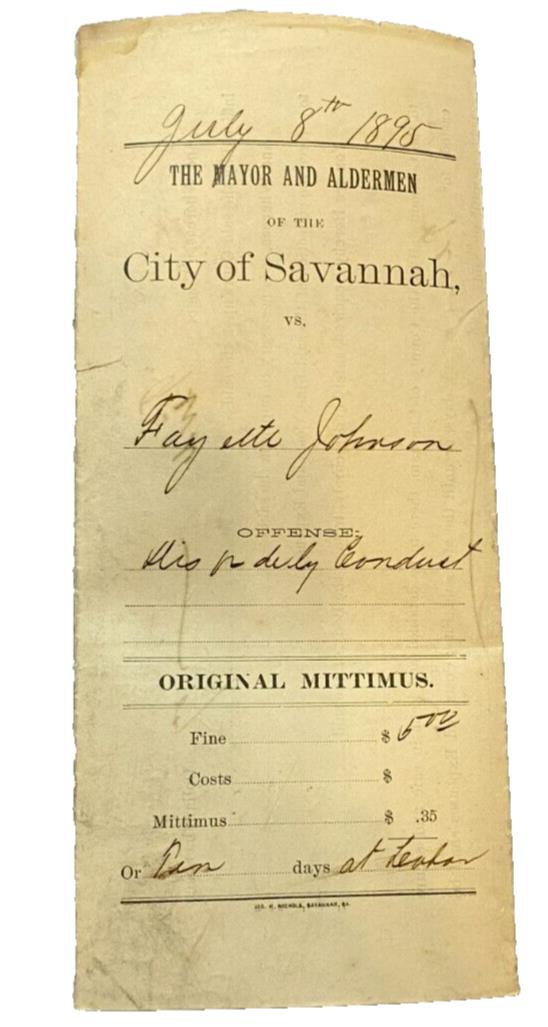 July 8th 1895
THE MAYOR AND ALDERMEN
OF THE
City of Savannah,
vs.
Fayette Johnson
OFFENSE:
Disorderly Conduct
ORIGINAL MITTIMUS.
Fine $ 5 00
Costs $
Mittimus $ .35
Or Ten days at
GEO. N. NICHOLS, SAVANNAH, GA.